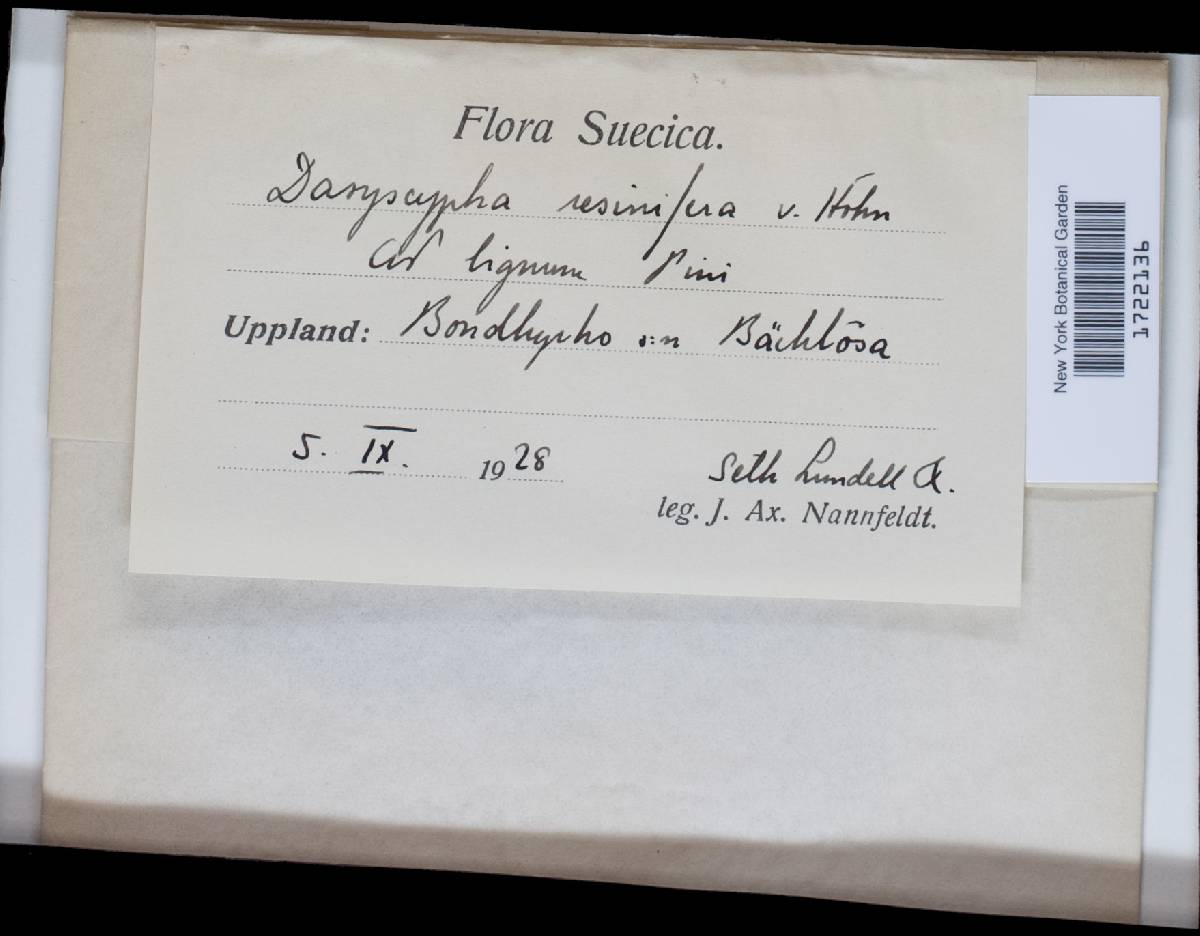 Flora Suecica.
Dasyscypha resinifera v. Höhn
Ad lignum Pini
Uppland: Bondkyrko s:n Bäcklösa
5. IX. 1928
Seth Lundell &.
leg. J. Ax. Nannfeldt.
New York Botanical Garden
1722136